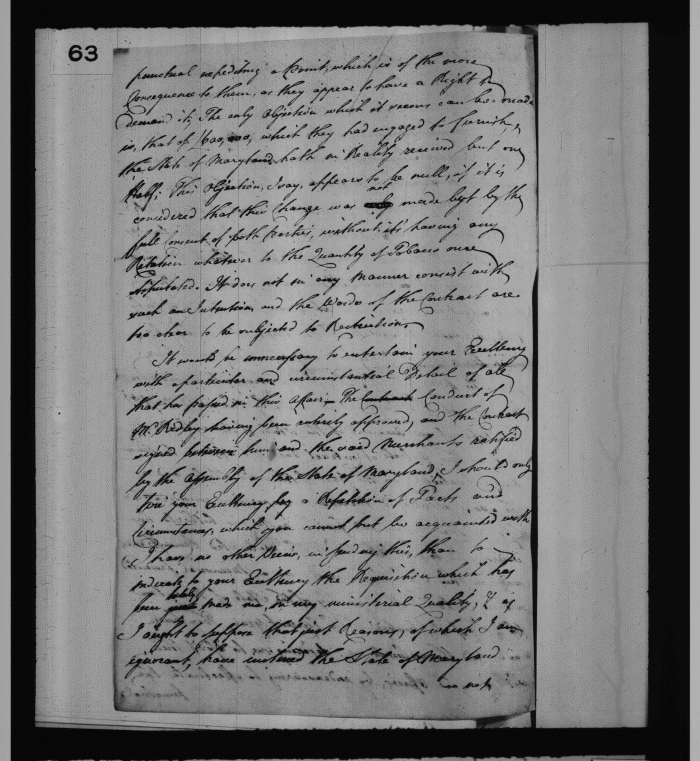 63
punctual expediting a Point, which is of the more
Consequence to them, as they appear to have a Right to
demand it; The only Objection which it seems can be made
is, that of 600,000, which they had engaged to furnish,
the State of Maryland hath in Reality received but one
Half; This Objection, I say, appears to be null, if it is
not
considered that this Change was made but by the
full Consent of both Parties, without its having any
Relation whatever to the Quantity of Tobacco once
stipulated. It does not in any Manner consist with
such an Intention and the Words of the Contract are
too clear to be subjected to Restrictions
It would be unnecessary to entertain your Excellency
with a particular and circumstantial Detail of all
that has passed in this Affair. The Conduct of
Mr. Ridley having been entirely approved, and the Contract
signed between him and the said Merchants ratified
by the Assembly of the State of Maryland, I should only
tire your Excellency by a Repetition of Facts and
Circumstances, which you cannot but be acquainted with
I have no other Views, in sending this, than to
indicate to your Excellency the Requisition which has
lately
been made me, in my ministerial Quality, & as
I ought to suppose that just Reasons, of which I am
ignorant, have induced the State of Maryland
not